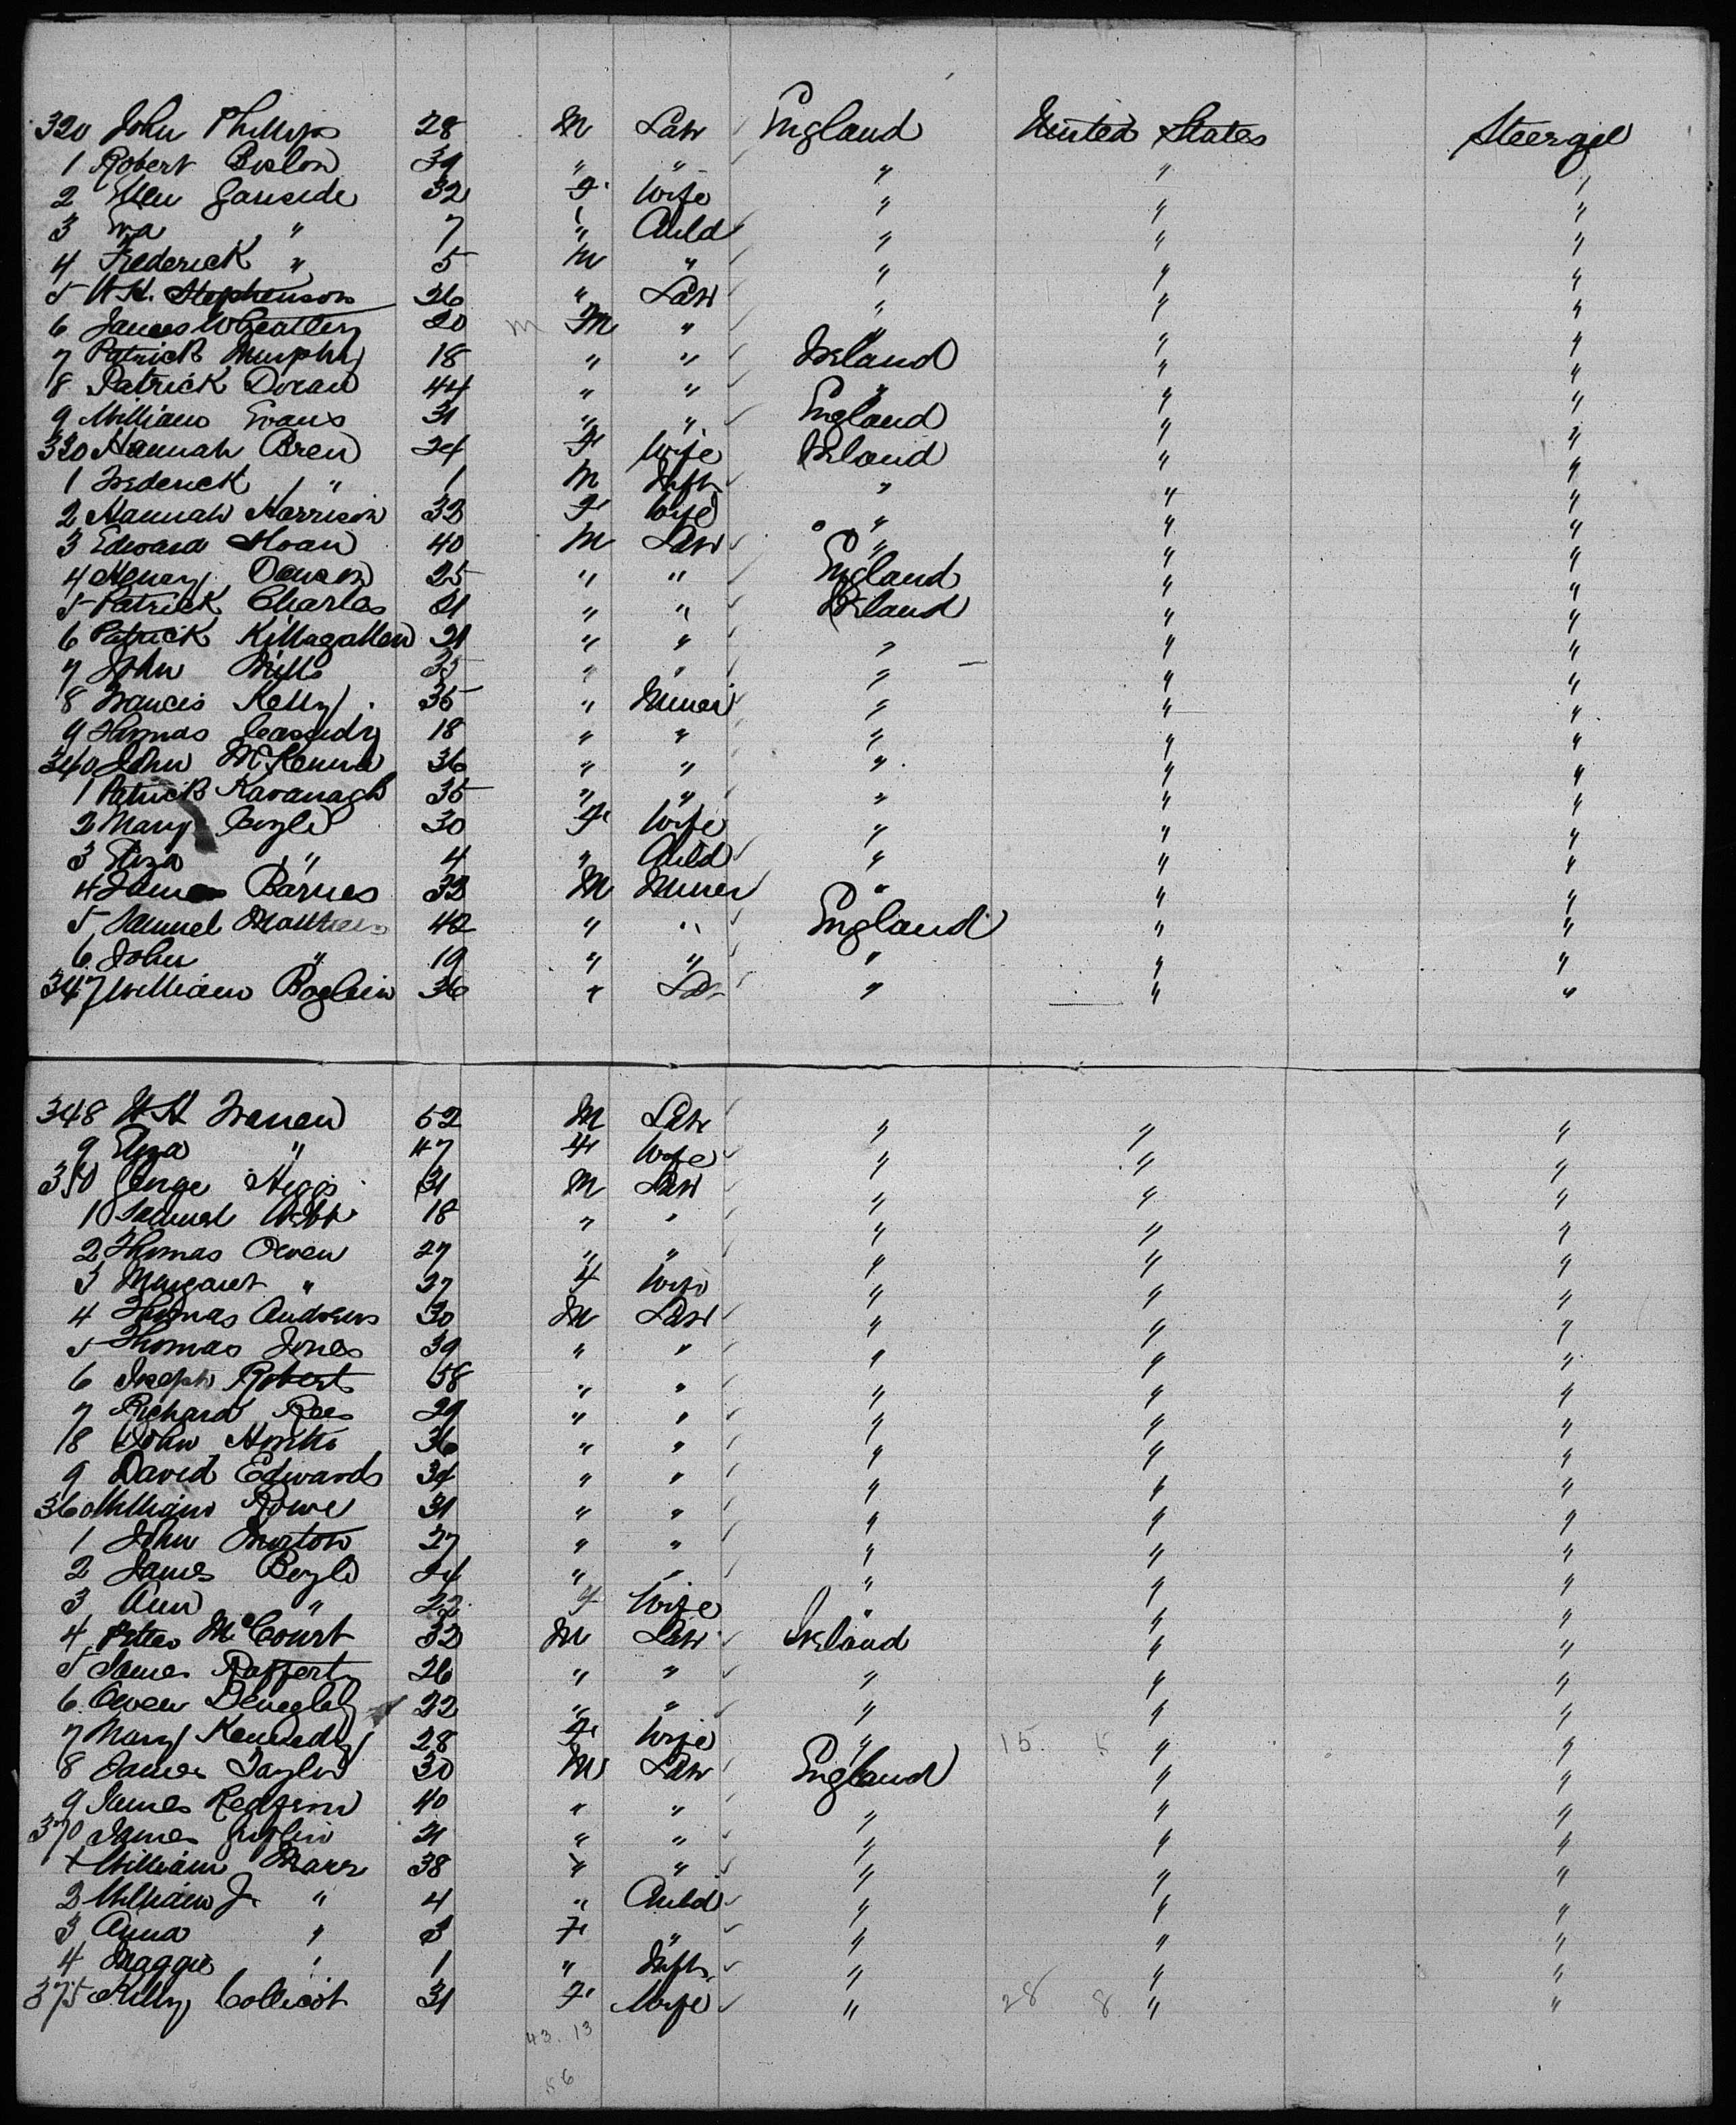 320 John Phillips 28 M Lab England United States Steerage
1 Robert 39 " " " " "
2 Ellen Garside 32 F Wife " " "
3 Eva " 7 " Child " " "
4 Frederick " 5 M " " " "
5 W H. Stephenson 26 " Lab " " "
6 James Wheatley 20 m M " " " "
7 Patrick Murphy 18 " " Ireland " "
8 Patrick Doran 44 " " " " "
9 William Evans 31 " " England " "
330 Hannah Bren 24 F Wife Ireland " "
1 Frederick " 1 M Inft. " " "
2 Hannah Harrison 32 F Wife " " "
3 Edward Sloan 40 M Lab " " "
4 Henry 25 " " England " "
5 Patrick Charles 21 " " Ireland " "
6 Patrick Killagallen 21 " " " " "
7 John Mills 35 " " " " "
8 Francis Kelly 35 " Miner " " "
9 Thomas Cassidy 18 " " " " "
340 John McKenna 36 " " " " "
1 Patrick Kavanagh 35 " " " " "
2 Mary Coyle 30 F Wife " " "
3 Eliza " 4 " Child " " "
4 James Barnes 32 M Miner " " "
5 Samuel Matthews 42 " " England " "
6 John " 19 " " " " "
347 William 36 " Lab " " "
348 W H 52 M Lab " " "
9 Eliza " 47 F Wife " " "
350 George Higgs 31 M Lab " " "
1 Samuel Webb 18 " " " " "
2 Thomas Owen 27 " " " " "
3 Margaret " 27 F Wife " " "
4 Thomas Andrews 30 M Lab " " "
5 Thomas Jones 39 " " " " "
6 Joseph Roberts 58 " " " " "
7 Richard Rees 29 " " " " "
8 John Smith 36 " " " " "
9 David Edwards 34 " " " " "
360 William Rowe 31 " " " " "
1 John 27 " " " " "
2 James Boyle 24 " " " " "
3 Ann " 22 F Wife " " "
4 Peter McCourt 32 M Lab Ireland " "
5 James Rafferty 26 " " " " "
6 Owen 22 " " " " "
7 Mary Kennedy 28 F Wife " 15. 5 " "
8 James Taylor 30 M Lab England " "
9 James Redfern 40 " " " " "
370 James 21 " " " " "
1 William Marr 38 " " " " "
2 William J. " 4 " Child " " "
3 Anna " 3 F " " " "
4 Maggie " 1 " Inft. " " "
375 Kitty Collicot 31 F Wife " 28 8 " "
43. 13
56